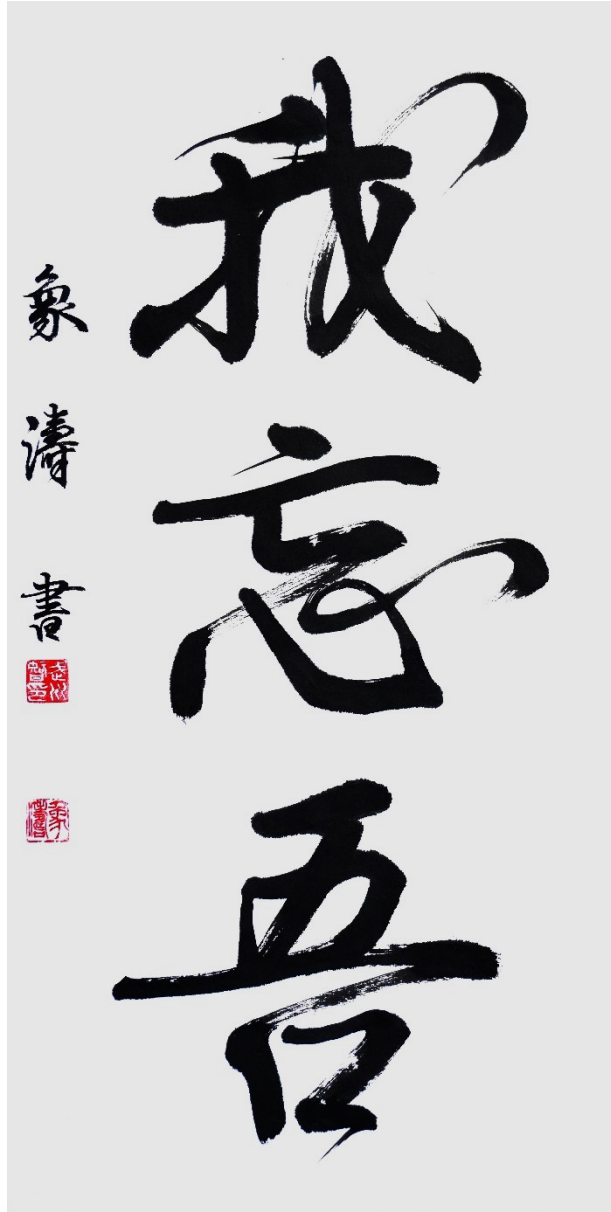 我忘吾
象濤書